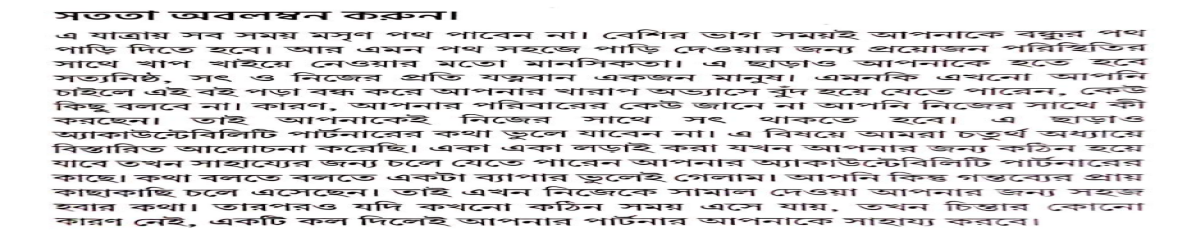 সততা অবলম্বন করুন।
এ যাত্রায় সব সময় মসৃণ পথ পাবেন না। বেশির ভাগ সময়ই আপনাকে বন্ধুর পথ
পাড়ি দিতে হবে। আর এমন পথ সহজে পাড়ি দেওয়ার জন্য প্রয়োজন পরিস্থিতির
সাথে খাপ খাইয়ে নেওয়ার মতো মানসিকতা। এ ছাড়াও আপনাকে হতে হবে
সত্যনিষ্ঠ, সৎ ও নিজের প্রতি যত্নবান একজন মানুষ। এমনকি এখনো আপনি
চাইলে এই বই পড়া বন্ধ করে আপনার খারাপ অভ্যাসে বুঁদ হয়ে যেতে পারেন, কেউ
কিছু বলবে না। কারণ, আপনার পরিবারের কেউ জানে না আপনি নিজের সাথে কী
করছেন। তাই আপনাকেই নিজের সাথে সৎ থাকতে হবে। এ ছাড়াও
অ্যাকাউন্টেবিলিটি পার্টনারের কথা ভুলে যাবেন না। এ বিষয়ে আমরা চতুর্থ অধ্যায়ে
বিস্তারিত আলোচনা করেছি। একা একা লড়াই করা যখন আপনার জন্য কঠিন হয়ে
যাবে তখন সাহায্যের জন্য চলে যেতে পারেন আপনার অ্যাকাউন্টেবিলিটি পার্টনারের
কাছে। কথা বলতে বলতে একটা ব্যাপার ভুলেই গেলাম। আপনি কিন্তু গন্তব্যের প্রায়
কাছাকাছি চলে এসেছেন। তাই এখন নিজেকে সামাল দেওয়া আপনার জন্য সহজ
হবার কথা। তারপরও যদি কখনো কঠিন সময় এসে যায়, তখন চিন্তার কোনো
কারণ নেই, একটি কল দিলেই আপনার পার্টনার আপনাকে সাহায্য করবে।